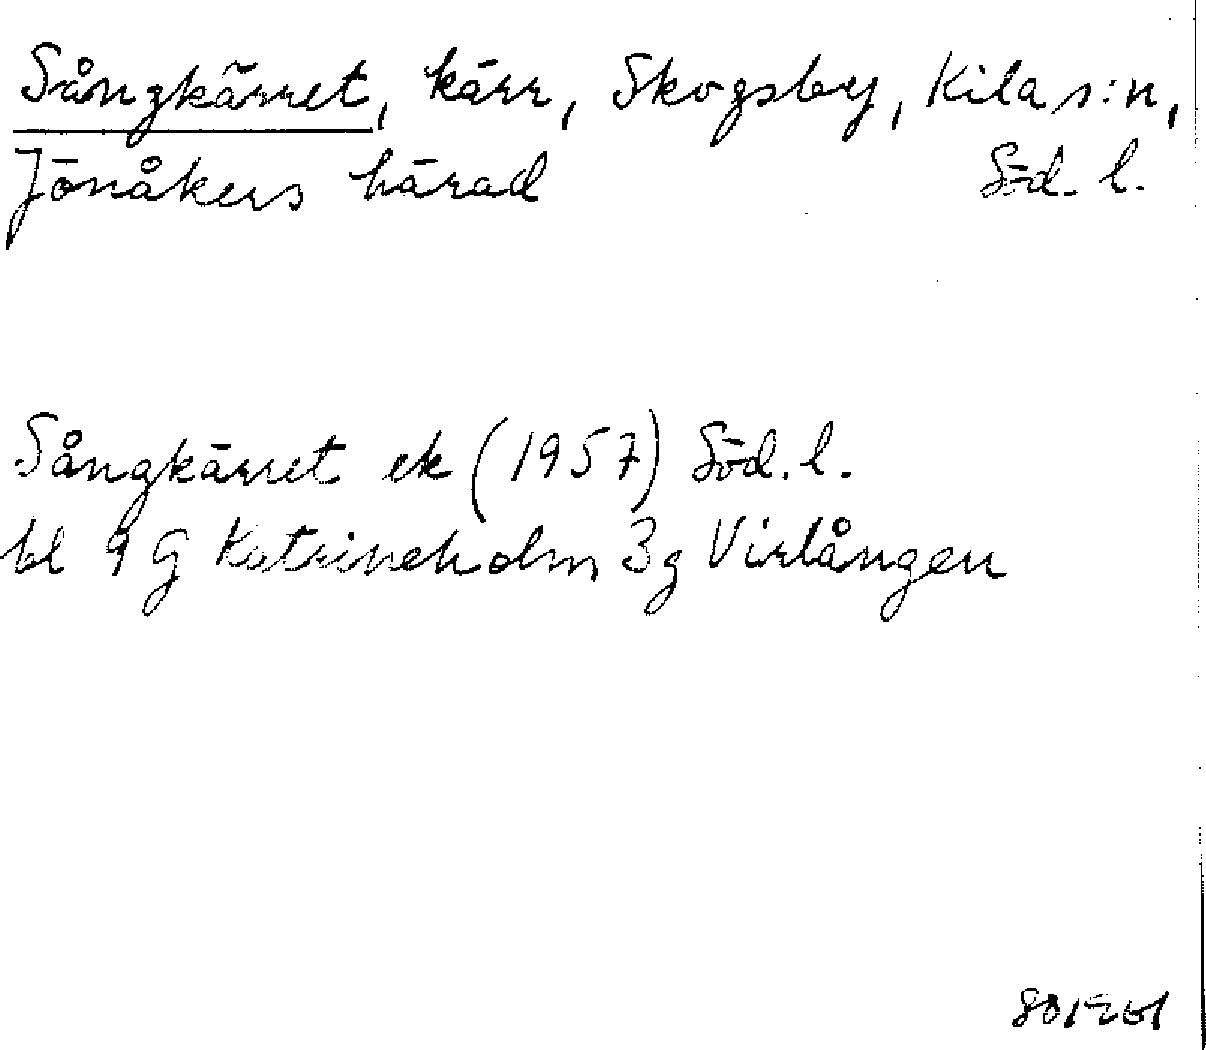 Sångkärret, kärr, Skogsby, Kila s:n,
Jönåkers härad Söd. l.
Sångkärret ek (1957) Söd. l.
bl 9 G Katrineholm 3g Virlången